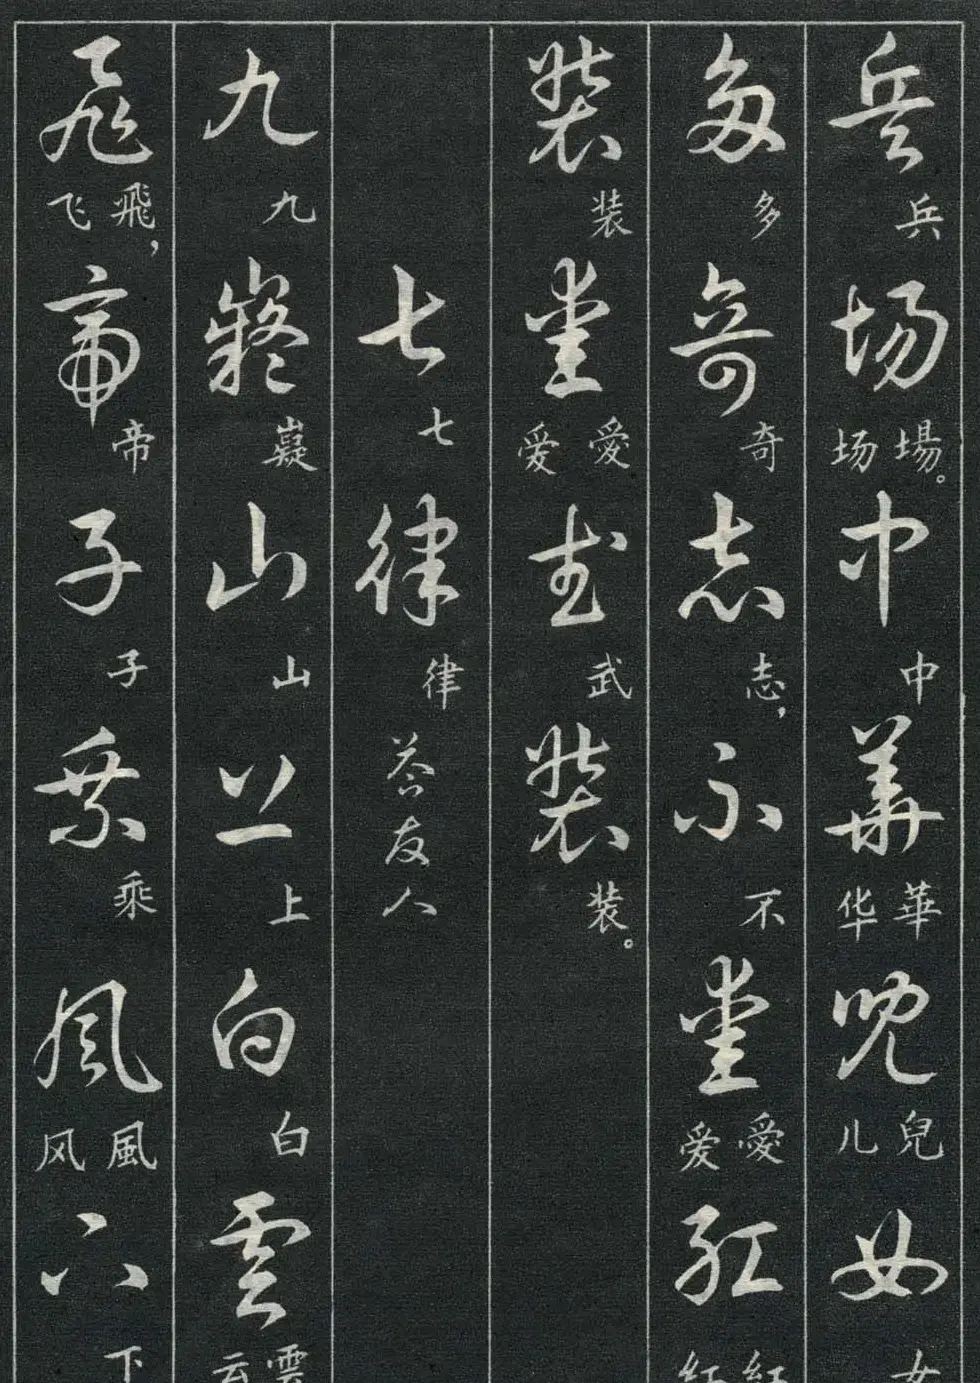 兵兵場場。场中中華華华兒兒儿女女
多多奇奇志志,不不愛愛爱紅紅红
装装愛愛爱武武装装。
七七律律答友人
九九嶷嶷山山上上白白雲雲云
飛飛,飞帝帝子子乘乘風風风下下